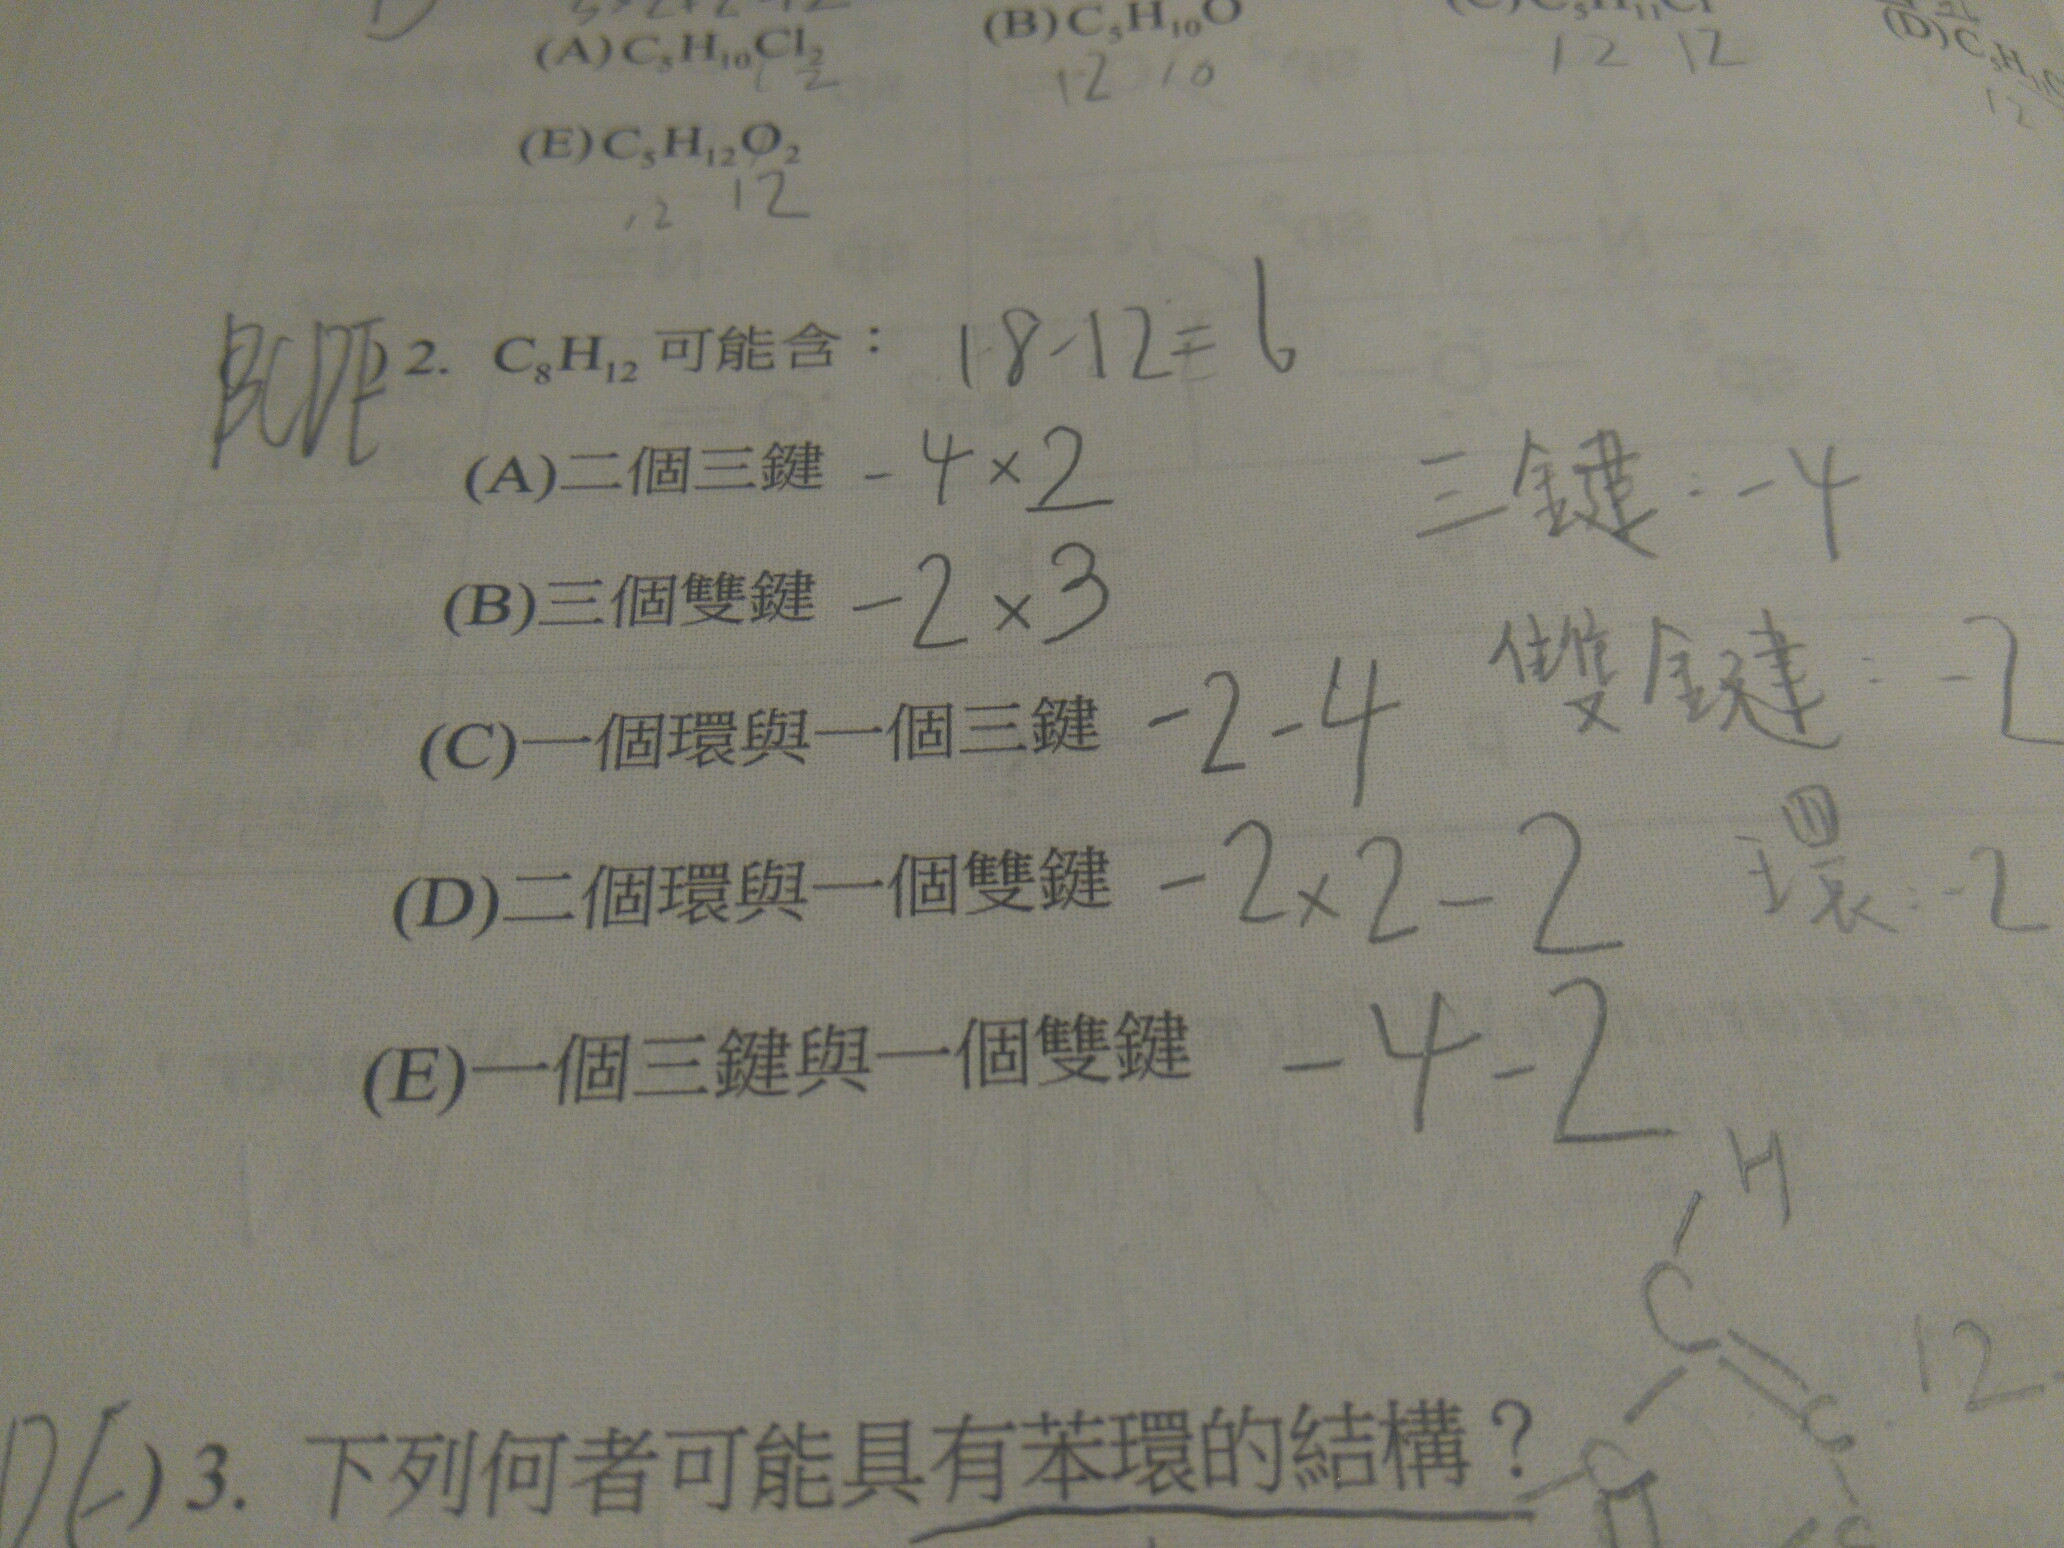 (A)C₅H₁₀Cl₂ (B)C₅H₁₀O
1 2 12 10 12 12 12
(E)C₅H₁₂O₂
12 12
BCDE)2. C₈H₁₂可能含: 18-12=6
(A)二個三鍵 -4×2 三鍵:-4
(B)三個雙鍵 -2×3 雙鍵:-2
(C)一個環與一個三鍵 -2-4
(D)二個環與一個雙鍵 -2×2-2 環:-2
(E)一個三鍵與一個雙鍵 -4-2
H
C
C 12
DE)3. 下列何者可能具有苯環的結構? C